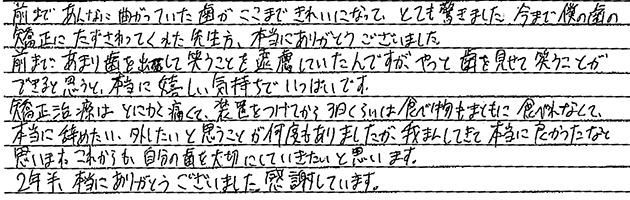 前まであんなに曲がっていた歯がここまできれいになって、とても驚きました。今まで僕の歯の
矯正にたずさわってくれた先生方、本当にありがとうございました。
前まであまり歯を出して笑うことを遠慮していたんですが、やっと歯を見せて笑うことが
できると思うと、本当に嬉しい気持ちでいっぱいです。
矯正治療はとにかく痛くて、装置をつけてから3日くらいは食べ物もまともに食べれなくて、
本当に辞めたい、外したいと思うことが何度もありましたが、我まんしてきて本当に良かったなと
思います。これからも、自分の歯を大切にしていきたいと思います。
2年半、本当にありがとうございました。感謝しています。